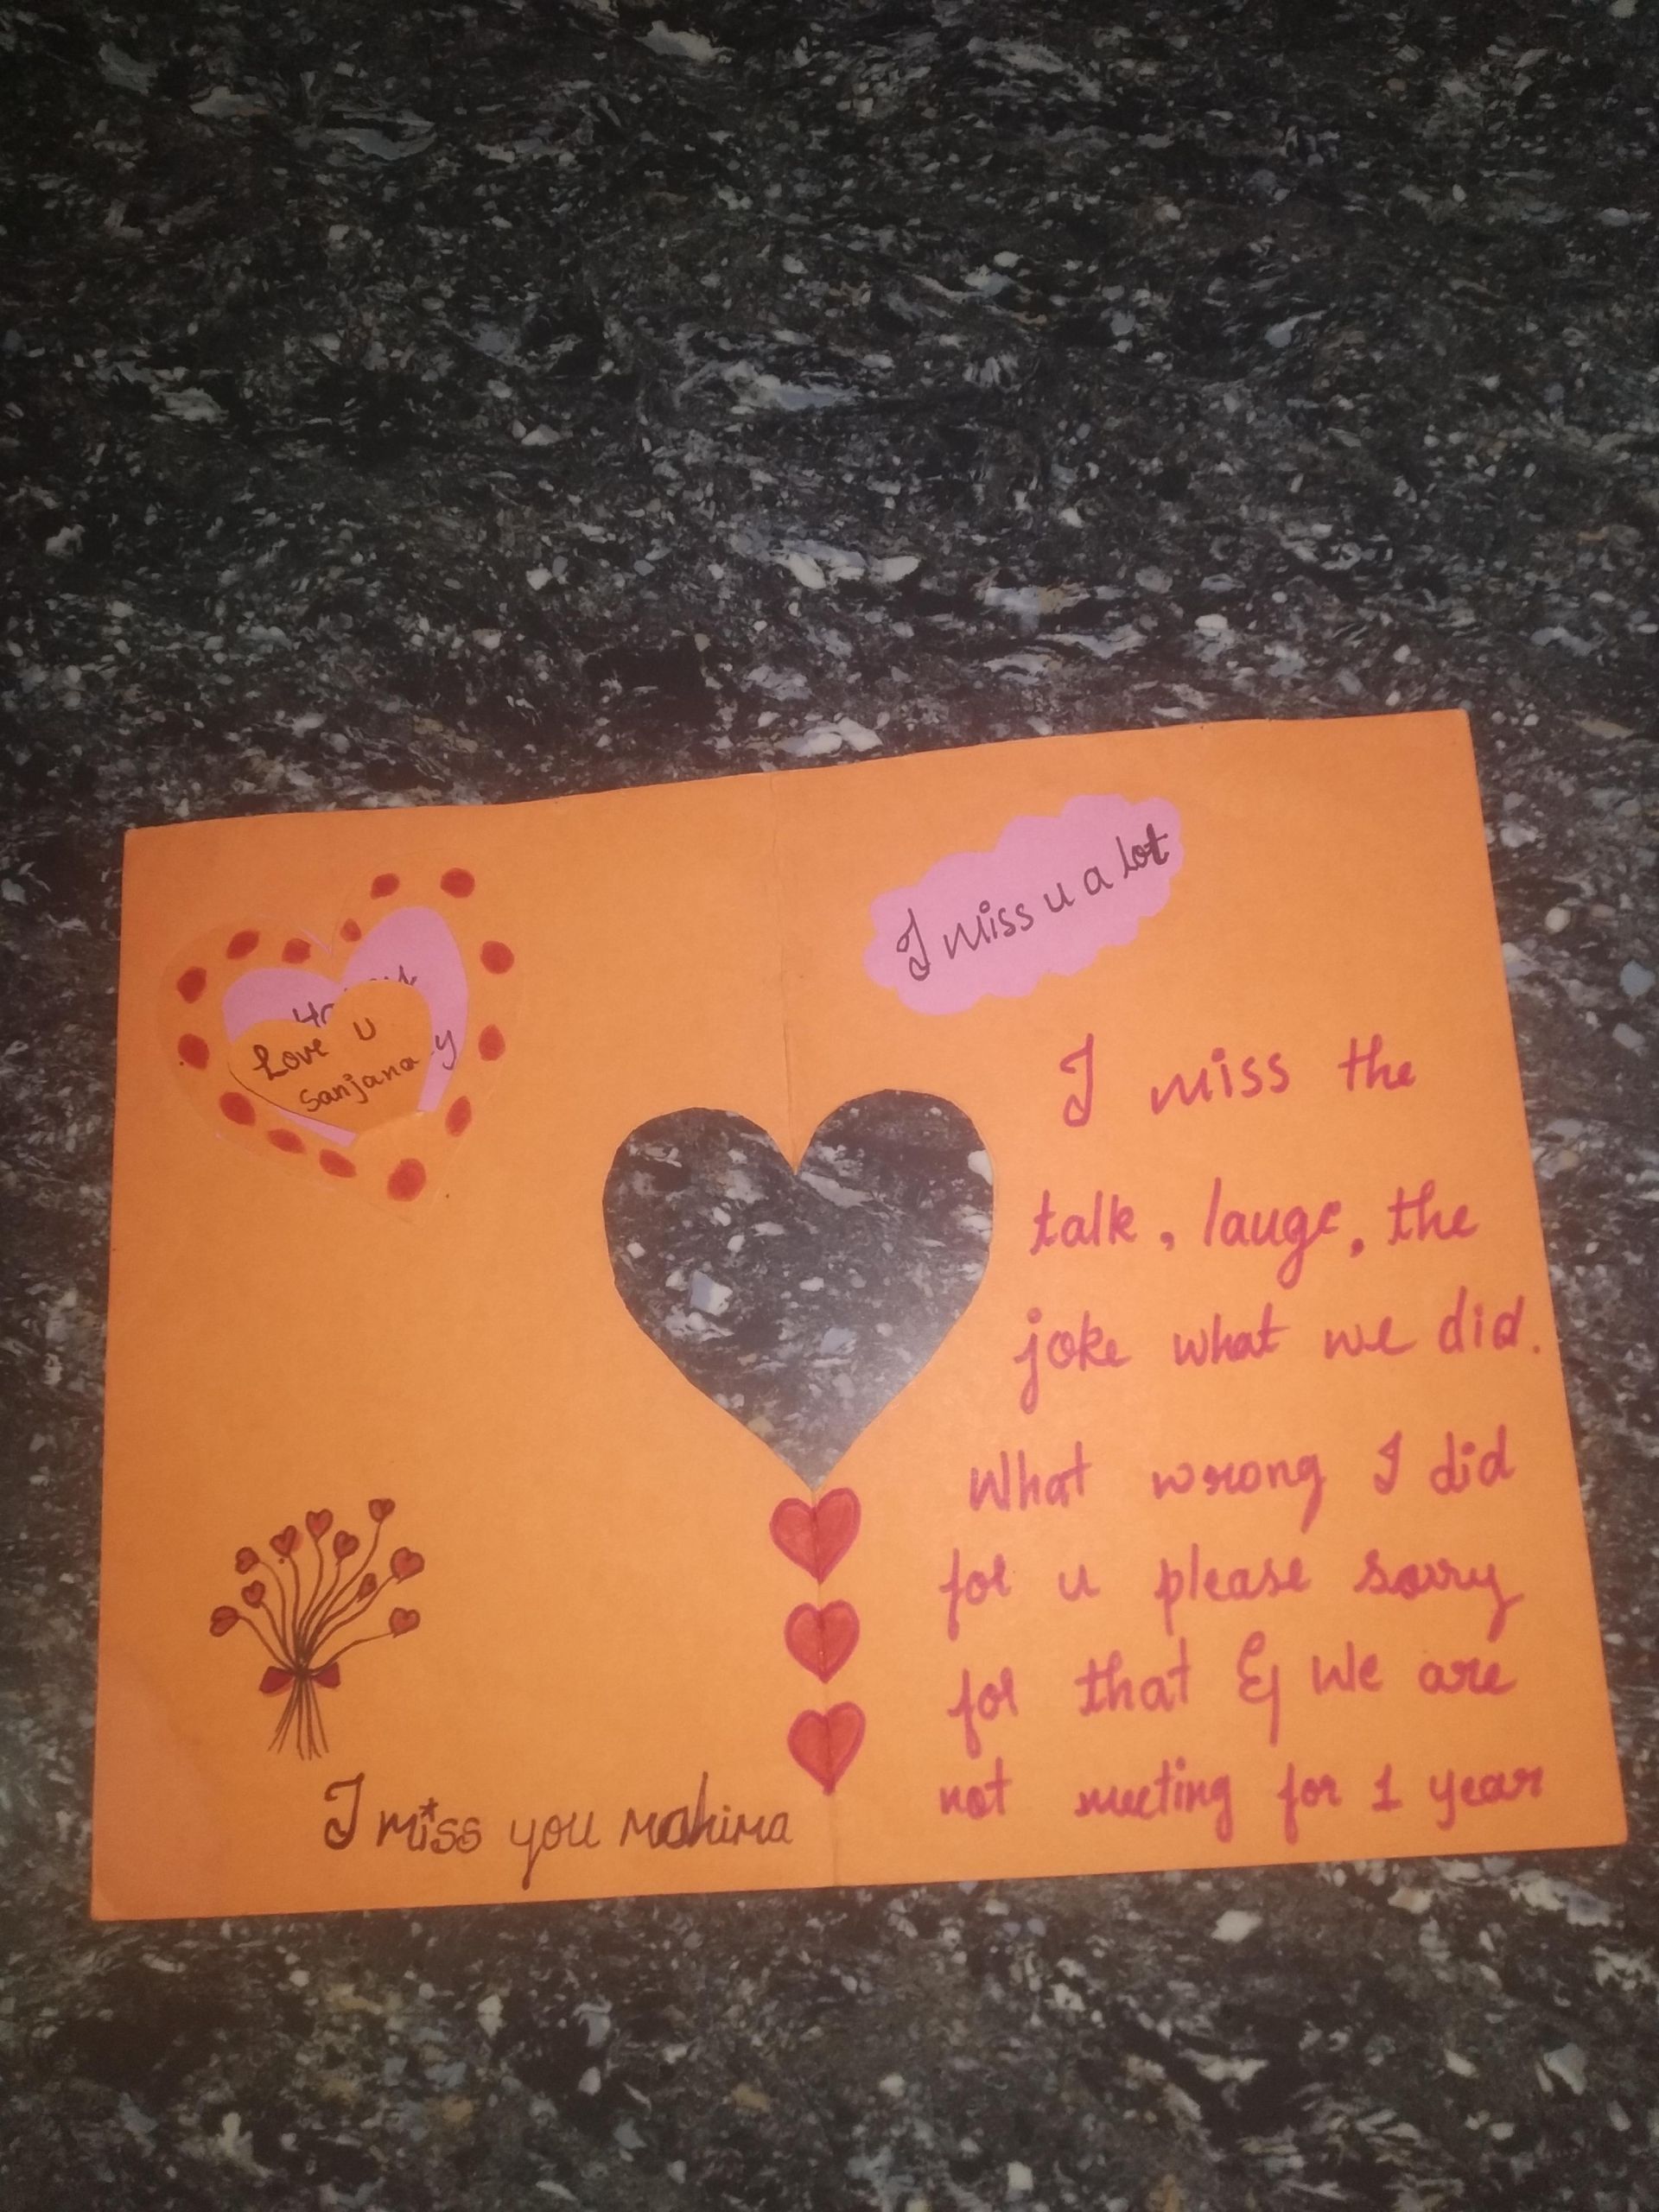 Love u
Sanjana
I miss you mahima
I miss u a lot
I miss the
talk, lauge, the
joke what we did.
What wrong I did
for u please sorry
for that & we are
not meeting for 1 year